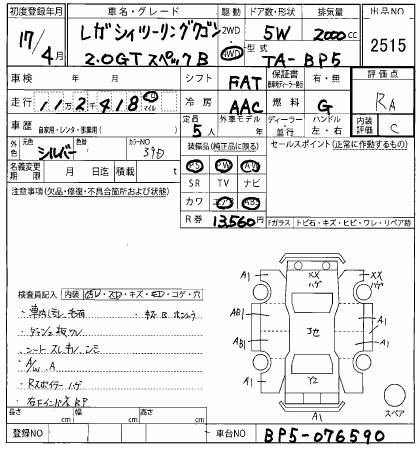 初度登録年月 車名・グレード 駆動 ドア数・形状 排気量 出品NO
17年 4月 レガシィツーリングワゴン 2WD 5W 2000cc 2515
2.0GT スペックB 4WD 型式 TA-BP5
車検 年 月 日 シフト FAT 保証書 有・無 評価点
走行 112418 km マイル 冷房 AAC 燃料 G RA
車歴 自家用・レンタ・事業用( ) 定員 5人 外車モデル 年 ディーラー・並行 ハンドル 左・右 内装評価 C
外色 元色 シルバー 色替 カラーNO 39D 装備品(純正品に限る) セールスポイント(正常に作動するもの)
名義変更期限 月 日迄 積載 t PS PW AW
注意事項(欠品・修復・不具合箇所および状態) SR TV ナビ
カワ エアB ABS
R券 13,560円 Fガラス トビ石・キズ・ヒビ・ワレ・リペア跡
検査員記入 内装 ヨゴレ・スロ・キズ・キロ・コゲ・穴
・車内 毛有 キズ B
・シート スレ キレ シミ
・A/W A
・Rスポイラー ハゲ
・右Fインドネ BP
A1 XX ハゲ XX ハゲ A1
AB1 AB1 3セ A1 A1
A1 Y2 A1
A1 スペア
長さ cm 幅 cm 高さ cm
登録NO 車台NO BP5-076590